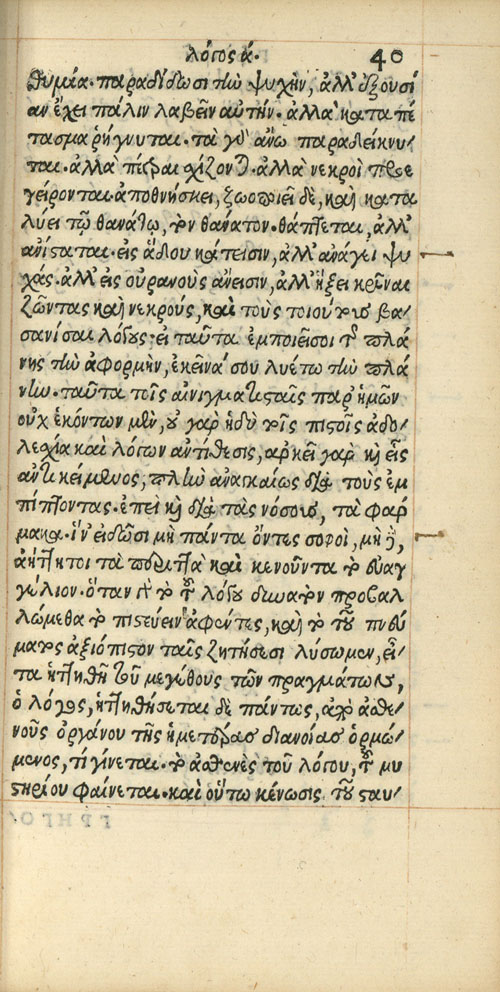 λόγος ά. 40
θυμία. παραδίδωσι τὼ ψυχὴν, ἀλλ' ἐξουσί
αν ἔχει πάλιν λαβεῖν αυτήν. ἀλλὰ κατα πέ
τασμα ῥήγνυται. τὰ γδ ἄνω παραδείκνυ/
ται. ἀλλὰ πέτραι σχίζονται. ἀλλὰ νεκροὶ προε
γείρονται. ἀποθνήσκει, ζωοποιεῖ δὲ, καὶ κατα
λύει τῷ θανάτῳ, τὸν θάνατον. θάπτεται, ἀλλ'
ανίσταται. εἰς ἅδου κάτεισιν, ἀλλ' ανάγει ψυ
χάς. ἀλλ' εἰς οὐρανοὺς ἄνεισιν, ἀλλ' ἥξει κρῖναι
ζῶντας καὶ νεκρούς, καὶ τοὺς τοιούτους βα/
σανίσαι λόγους. εἰ ταῦτα ἐμποιεῖσοι τῆς πλά
νης τὼ ἀφορμὴν, ἐκεῖνά σου λυέτω τὼ πλά
νἰω. ταῦτα τοῖς αἰνιγματισταῖς παρ' ἡμῶν
οὐχ ἑκόντων μὲν, οὐ γαρ ἡδὺ τοῖς πιστοῖς ἀδο/
λεχία καὶ λόγων αντίθεσις, αρκεῖ γαρ καὶ εἷς
αντικείμενος, πλἰὼ αναγκαίως διὰ τοὺς ἐμ
πίπτοντας. ἐπεὶ καὶ διὰ τὰς νόσους, τὰ φαρ
μακα. ἵν' εἰδῶσι μὴ πάντα ὄντες σοφοὶ, μὴ δὲ,
ἀήττητοι τὰ περιττὰ καὶ κενοῦντα τὸ εὐαγ
γέλιον. ὅταν γδ τὸ τοῦ λόγου δυνατὸν προβαλ
λώμεθα τὸ πιστεύειν ἀφέντες, καὶ τὸ τοῦ πνεύ
ματος ἀξιόπιστον ταῖς ζητήσεσι λύσωμεν, εἶ/
τα ἡττηθῇ τοῦ μεγέθους τῶν πραγμάτων,
ὁ λόγος, ἡττηθήσεται δὲ πάντως, ἀπὸ ἀσθε/
νοῦς ὀργάνου τῆς ἡμετέρας διανοίας ὁρμώ/
μενος, τί γίνεται. τὸ ἀσθενὲς τοῦ λόγου, τοῦ μυ
στηρίου φαίνεται. καὶ οὕτω κένωσις τοῦ σταυ/